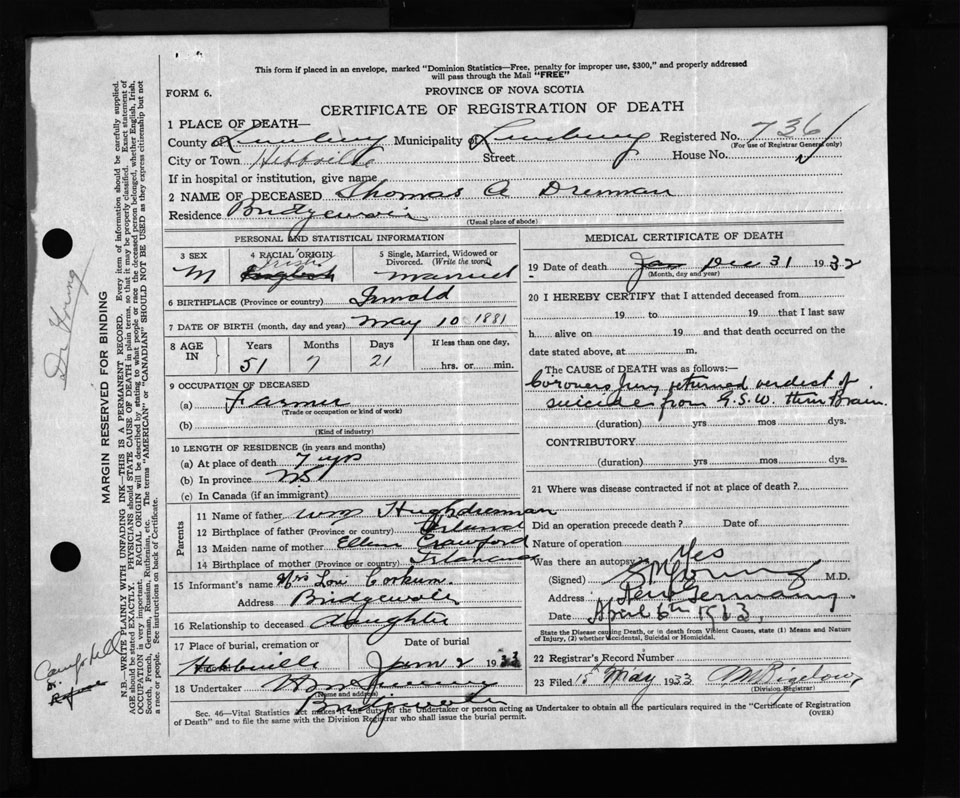 This form if placed in an envelope, marked "Dominion Statistics—Free, penalty for improper use, $300," and properly addressed
will pass through the Mail "FREE"
FORM 6.
PROVINCE OF NOVA SCOTIA
CERTIFICATE OF REGISTRATION OF DEATH
1 PLACE OF DEATH—
County of Lunenburg Municipality of Lunenburg Registered No. 736
(For use of Registrar General only)
City or Town Hebbville Street House No.
If in hospital or institution, give name
2 NAME OF DECEASED Thomas A Drennan
Residence Bridgewater
(Usual place of abode)
PERSONAL AND STATISTICAL INFORMATION
3 SEX
M
4 RACIAL ORIGIN
Irish
English
5 Single, Married, Widowed or
Divorced. (Write the word)
Married
6 BIRTHPLACE (Province or country)
7 DATE OF BIRTH (month, day and year) May 10 1881
8 AGE
IN
Years Months Days If less than one day,
51 7 21 hrs. or min.
9 OCCUPATION OF DECEASED
(a) Farmer
(Trade or occupation or kind of work)
(b)
(Kind of industry)
10 LENGTH OF RESIDENCE (in years and months)
(a) At place of death 7 yrs
(b) In province NS
(c) In Canada (if an immigrant)
Parents
11 Name of father Wm Hugh Drennan
12 Birthplace of father (Province or country) Ireland
13 Maiden name of mother Ellen Crawford
14 Birthplace of mother (Province or country) Ireland
15 Informant's name Mrs Lou Corkum
Address Bridgewater
16 Relationship to deceased daughter
17 Place of burial, cremation or
Date of burial
Hebbville Jan 2 1933
18 Undertaker
(Name and address)
Bridgewater
MEDICAL CERTIFICATE OF DEATH
19 Date of death Jan Dec 31 1932
(Month, day and year)
20 I HEREBY CERTIFY that I attended deceased from
19 to 19 that I last saw
h alive on 19 and that death occurred on
date stated above, at m.
The CAUSE of DEATH was as follows:—
Coroners Jury returned verdict of
suicide from G.S.W. thru Brain.
(duration) yrs mos dys.
CONTRIBUTORY
(duration) yrs mos dys.
21 Where was disease contracted if not at place of death?
Did an operation precede death? Date of
Nature of operation
Was there an autopsy? Yes
(Signed) Young M.D.
Address New Germany
Date April 6th 1933
State the Disease causing Death, or in death from Violent Causes, state (1) Means and Nature
of Injury, (2) whether Accidental, Suicidal or Homicidal.
22 Registrar's Record Number
23 Filed 15 May 1933 Bigelow
(Division Registrar)
Sec. 46—Vital Statistics Act makes it the duty of the Undertaker or person acting as Undertaker to obtain all the particulars required in the "Certificate of Registration
of Death" and to file the same with the Division Registrar who shall issue the burial permit.
(OVER)
MARGIN RESERVED FOR BINDING
N.B.—WRITE PLAINLY WITH UNFADING INK—THIS IS A PERMANENT RECORD. Every item of information should be carefully supplied.
AGE should be stated EXACTLY. PHYSICIANS should STATE CAUSE OF DEATH in plain terms, so that it may be properly classified. Exact statement of
OCCUPATION is very important. RACIAL ORIGIN will be described by stating to what people or race the deceased person belonged, whether English, Irish,
Scotch, French, German, Russian, Ruthenian, etc. The terms "AMERICAN" or "CANADIAN" SHOULD NOT BE USED as they express citizenship but not
a race or people. See instructions on back of Certificate.
Dr Young
Campbell
Dr.